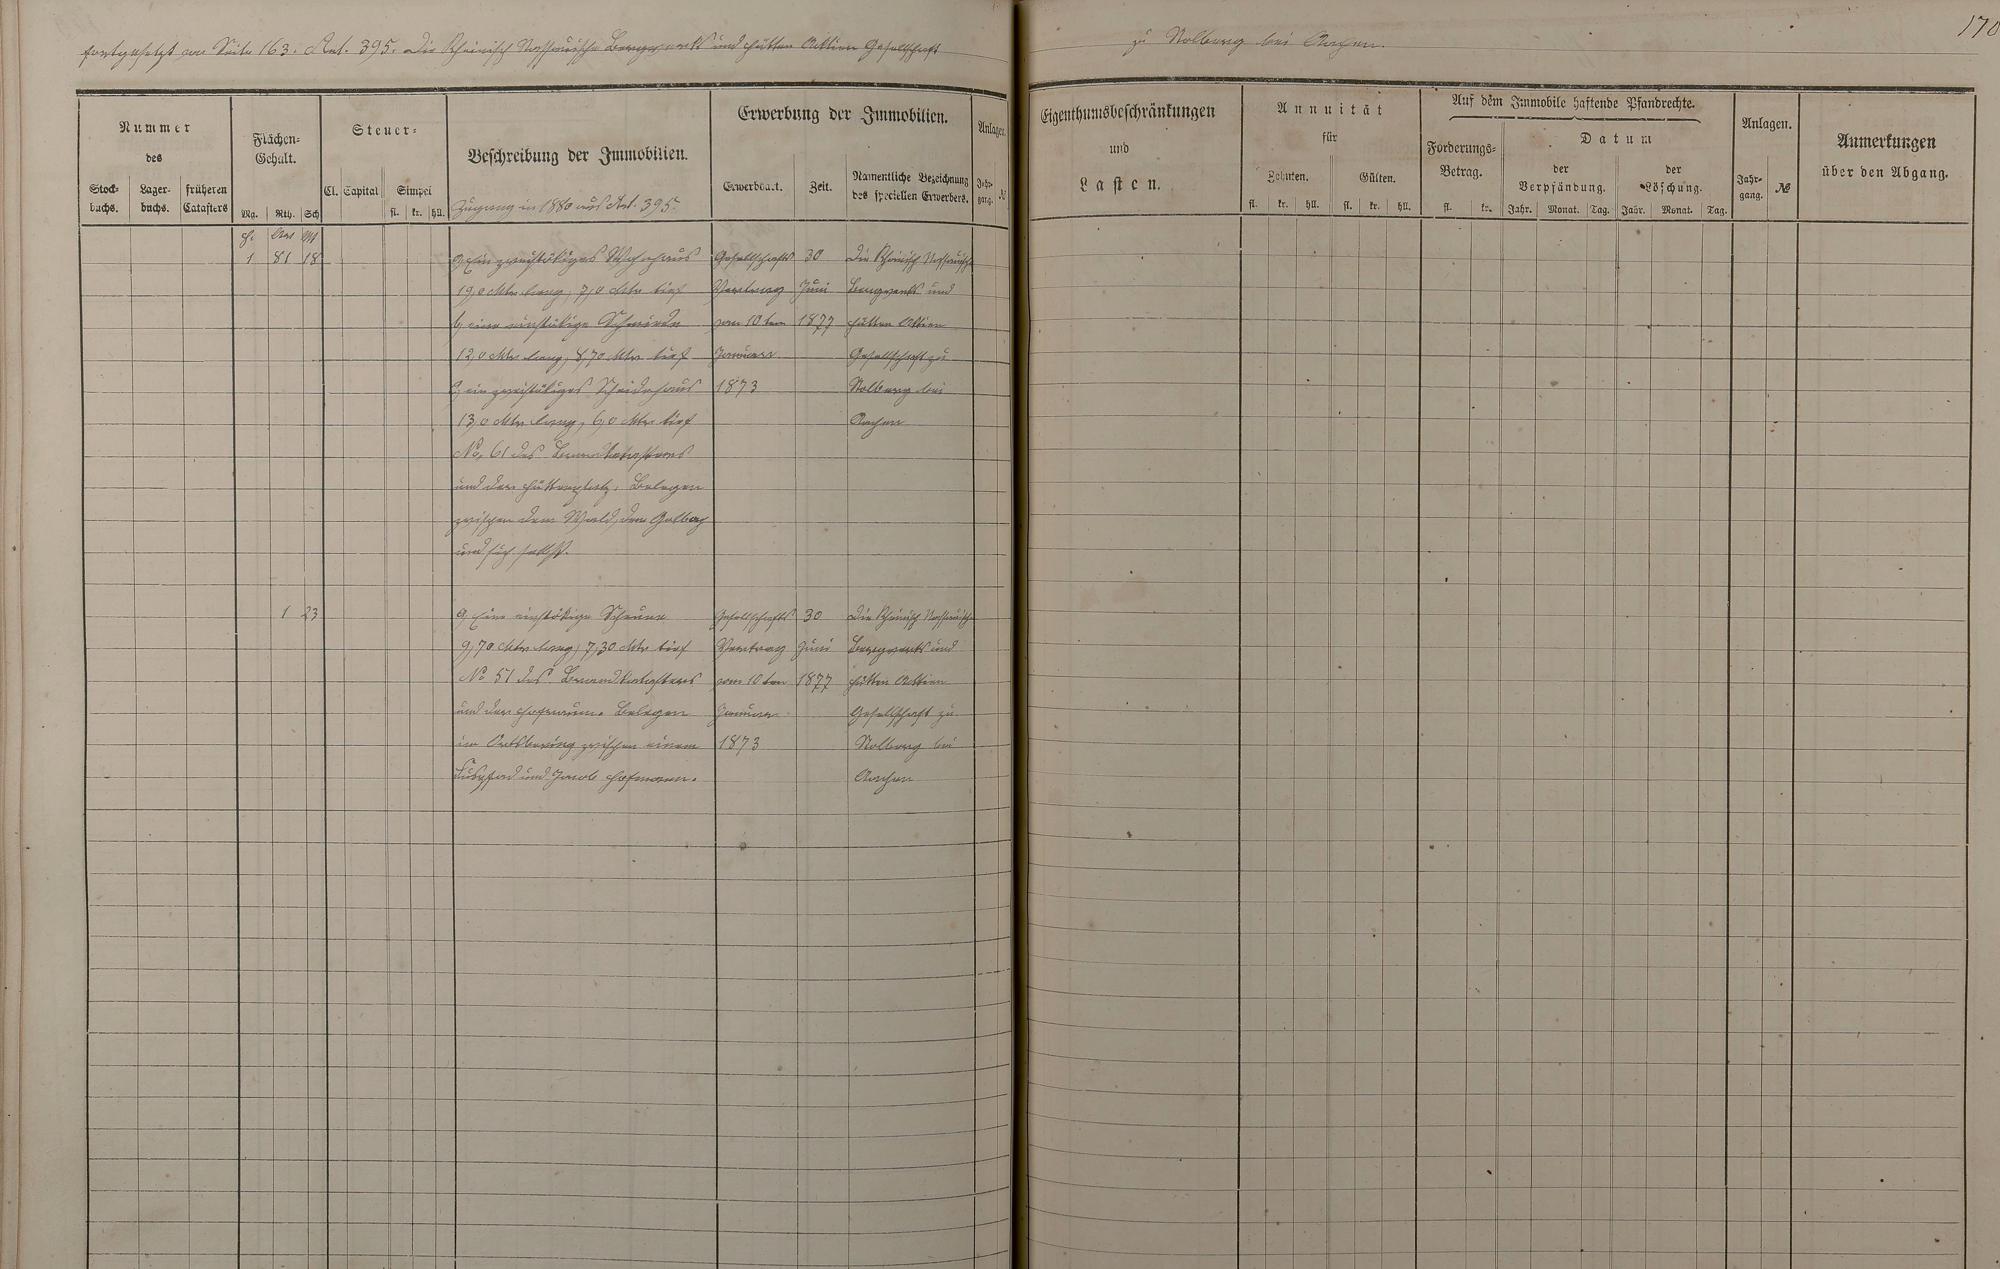 170
fortgesetzt von Seite 163. Art. 395. Die Rheinisch Nassauische Bergwerks und Hütten Aktien Gesellschaft zu Stolberg bei Aachen.
Nummer
des
Stock-
buchs.
Lager-
buchs.
früheren
Catasters
Flächen-
Gehalt.
Mg. Rth. Sch
Steuer-
Cl. Capital Simpel
fl. kr. hll.
Beschreibung der Immobilien.
Zugang in 1880 aus Art. 395.
Erwerbung der Immobilien.
Erwerbsart. Zeit.
Namentliche Bezeichnung
des speciellen Erwerbers.
Anlagen.
Jahr-
gang. №
Eigenthumsbeschränkungen
und
Lasten.
Annuität
für
Zehnten. Gülten.
fl. kr. hll. fl. kr. hll.
Auf dem Immobile haftende Pfandrechte.
Forderungs-
Betrag.
fl. kr.
Datum
der
Verpfändung.
Jahr. Monat. Tag.
der
Löschung.
Jahr. Monat. Tag.
Anlagen.
Jahr-
gang. №
Anmerkungen
über den Abgang.
H. Ar M
1 81 18 a, Ein zweistökiges Wohnhaus Gesellschafts 30 Die Rheinisch Nassauische
19,0 Mtr lang, 7,0 Mtr tief Vertrag Juni Bergwerks und
b, eine einstökige Schmiede vom 10ten 1877 Hütten Aktien
12,0 Mtr lang, 8,70 Mtr tief Januar Gesellschaft zu
c, ein zweistökiges Scheidehaus 1873 Stolberg bei
13,0 Mtr lang, 6,0 Mtr tief Aachen
No. 61 des Brandkatasters
und der Hüttenplatz. Belegen
zwischen dem Wald, der
und sich selbst.
1 23 a, Eine einstökige Scheune Gesellschafts 30 Die Rheinisch Nassauische
9,70 Mtr lang, 7,30 Mtr tief Vertrag Juni Bergwerks und
No 51 des Brandkatasters vom 10ten 1877 Hütten Aktien
und der Hofraum. Belegen Januar Gesellschaft zu
im Ortsbering zwischen einem 1873 Stolberg bei
Fußpfad und Jacob Hofmann. Aachen